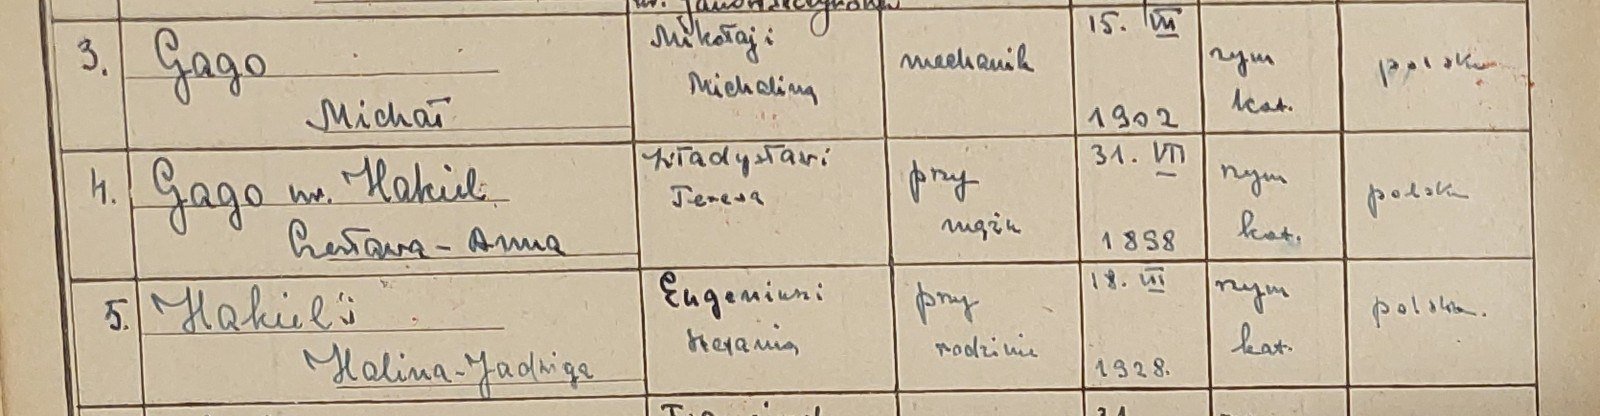 3. Gago
Michał
Mikołaj i
Michalina
mechanik
15. VIII
1902
rzym
kat.
polska
4. Gago ur. Hakiel
Czesława - Anna
Władysław i
Teresa
przy
mężu
31. VII
1898
rzym
kat.
polska
5. Hakiel
Halina - Jadwiga
Eugeniusz i
Stefania
przy
rodzinie
18. III
1928.
rzym
kat.
polska.